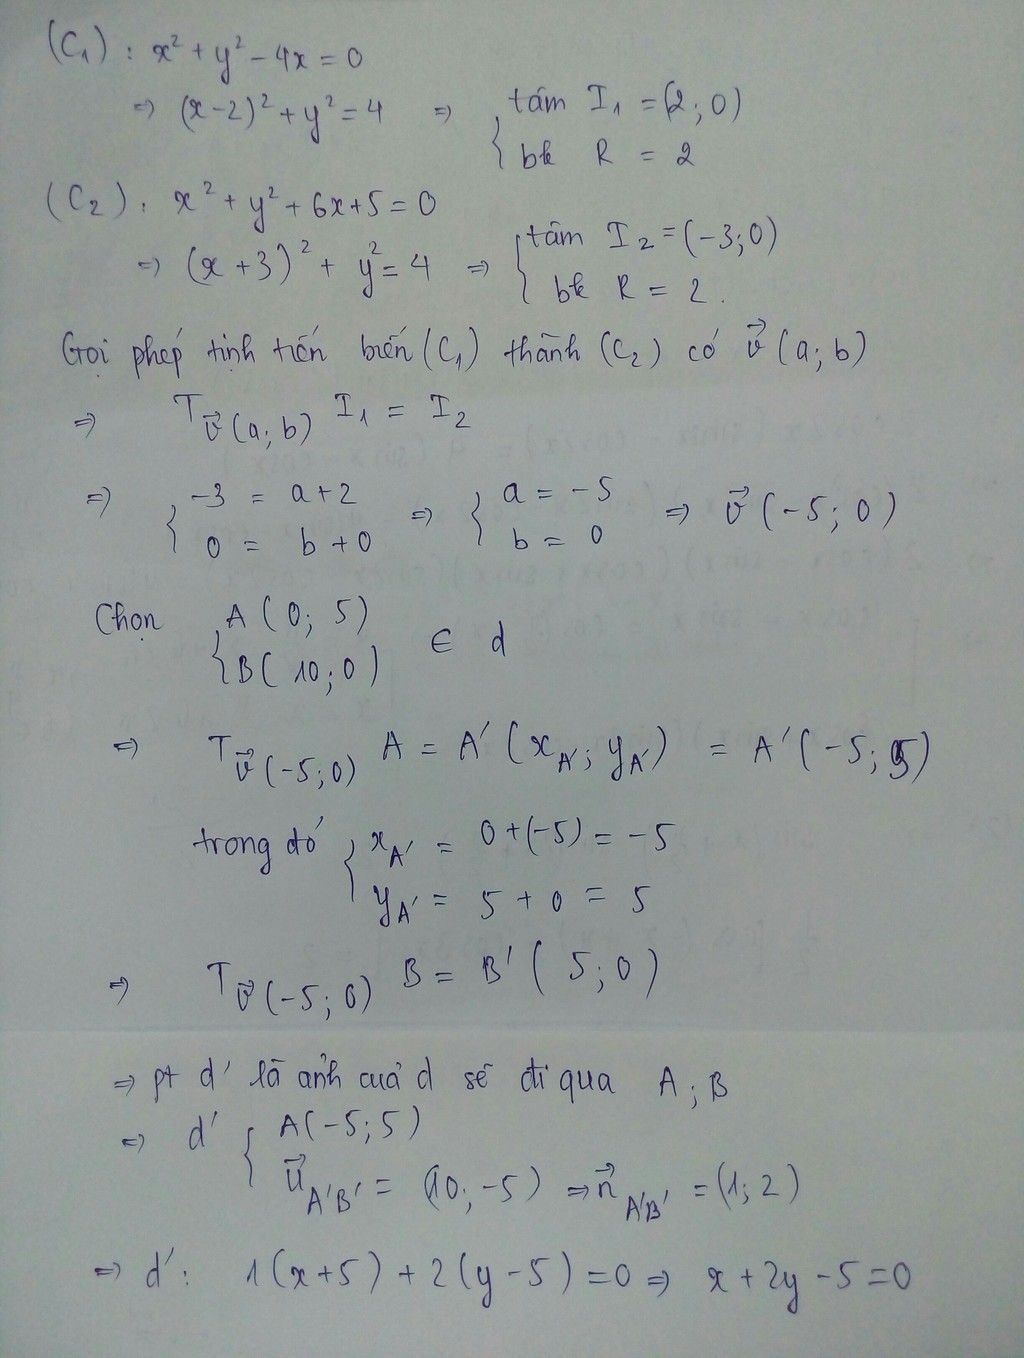 (C₁) : x² + y² - 4x = 0
⇒ (x-2)² + y² = 4 ⇒ { tâm I₁ = (2; 0)
bk R = 2
(C₂) : x² + y² + 6x + 5 = 0
⇒ (x+3)² + y² = 4 ⇒ { tâm I₂ = (-3; 0)
bk R = 2.
Gọi phép tịnh tiến biến (C₁) thành (C₂) có v⃗ (a; b)
⇒ T v⃗ (a; b) I₁ = I₂
⇒ { -3 = a+2 ⇒ { a = -5 ⇒ v⃗ (-5; 0)
0 = b+0 b = 0
Chọn { A (0; 5) ∈ d
B (10; 0)
⇒ T v⃗ (-5; 0) A = A' (x A'; y A') = A' (-5; 5)
trong đó { x A' = 0+(-5) = -5
y A' = 5 + 0 = 5
⇒ T v⃗ (-5; 0) B = B' (5; 0)
⇒ pt d' là ảnh của d sẽ đi qua A; B
⇒ d' { A(-5; 5)
u⃗ A'B' = (10; -5) ⇒ n⃗ A'B' = (1; 2)
⇒ d' : 1(x+5) + 2(y-5) = 0 ⇒ x + 2y - 5 = 0